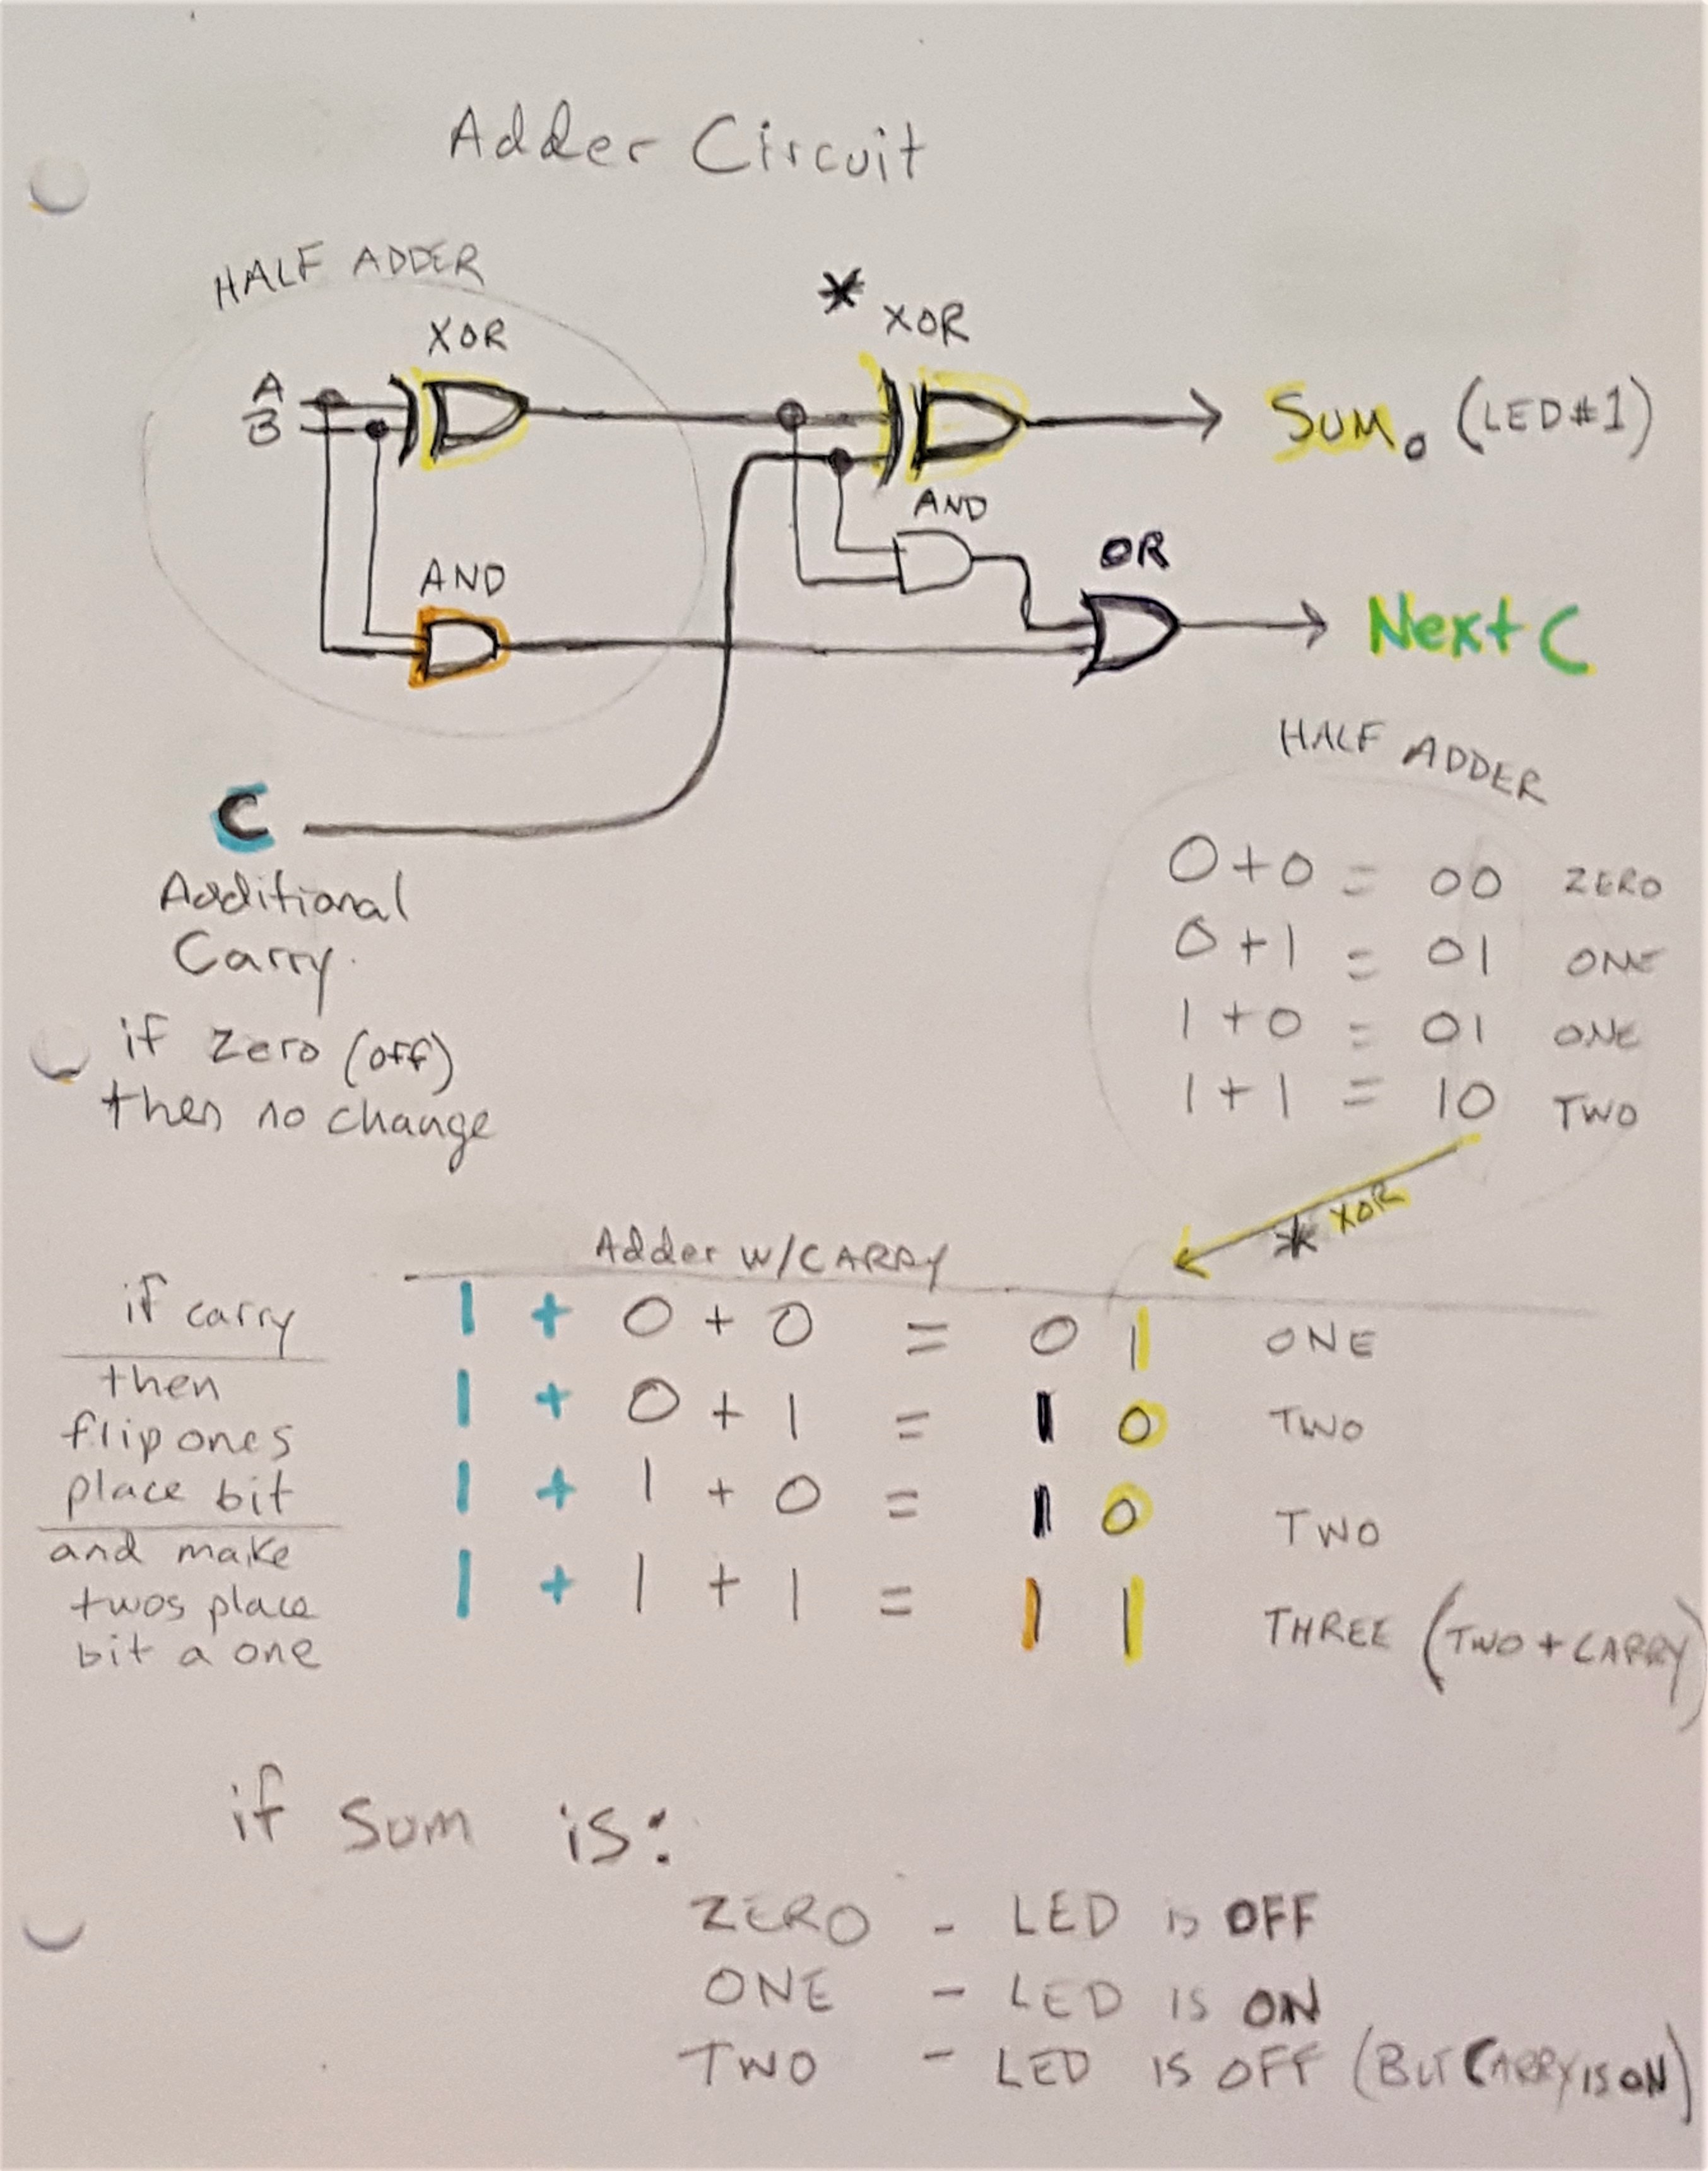 Adder Circuit
HALF ADDER
XOR
* XOR
A
B
Sum0 (LED#1)
AND
OR
AND
Next C
HALF ADDER
C
Additional
Carry.
if zero (off)
then no change
0+0 = 00 ZERO
0+1 = 01 ONE
1+0 = 01 ONE
1+1 = 10 TWO
* XOR
Adder W/CARRY
if carry
then
flip ones
place bit
and make
twos place
bit a one
1 + 0 + 0 = 0 1 ONE
1 + 0 + 1 = 1 0 TWO
1 + 1 + 0 = 1 0 TWO
1 + 1 + 1 = 1 1 THREE (TWO + CARRY)
if sum is:
ZERO - LED is OFF
ONE - LED IS ON
TWO - LED IS OFF (BUT CARRY IS ON)